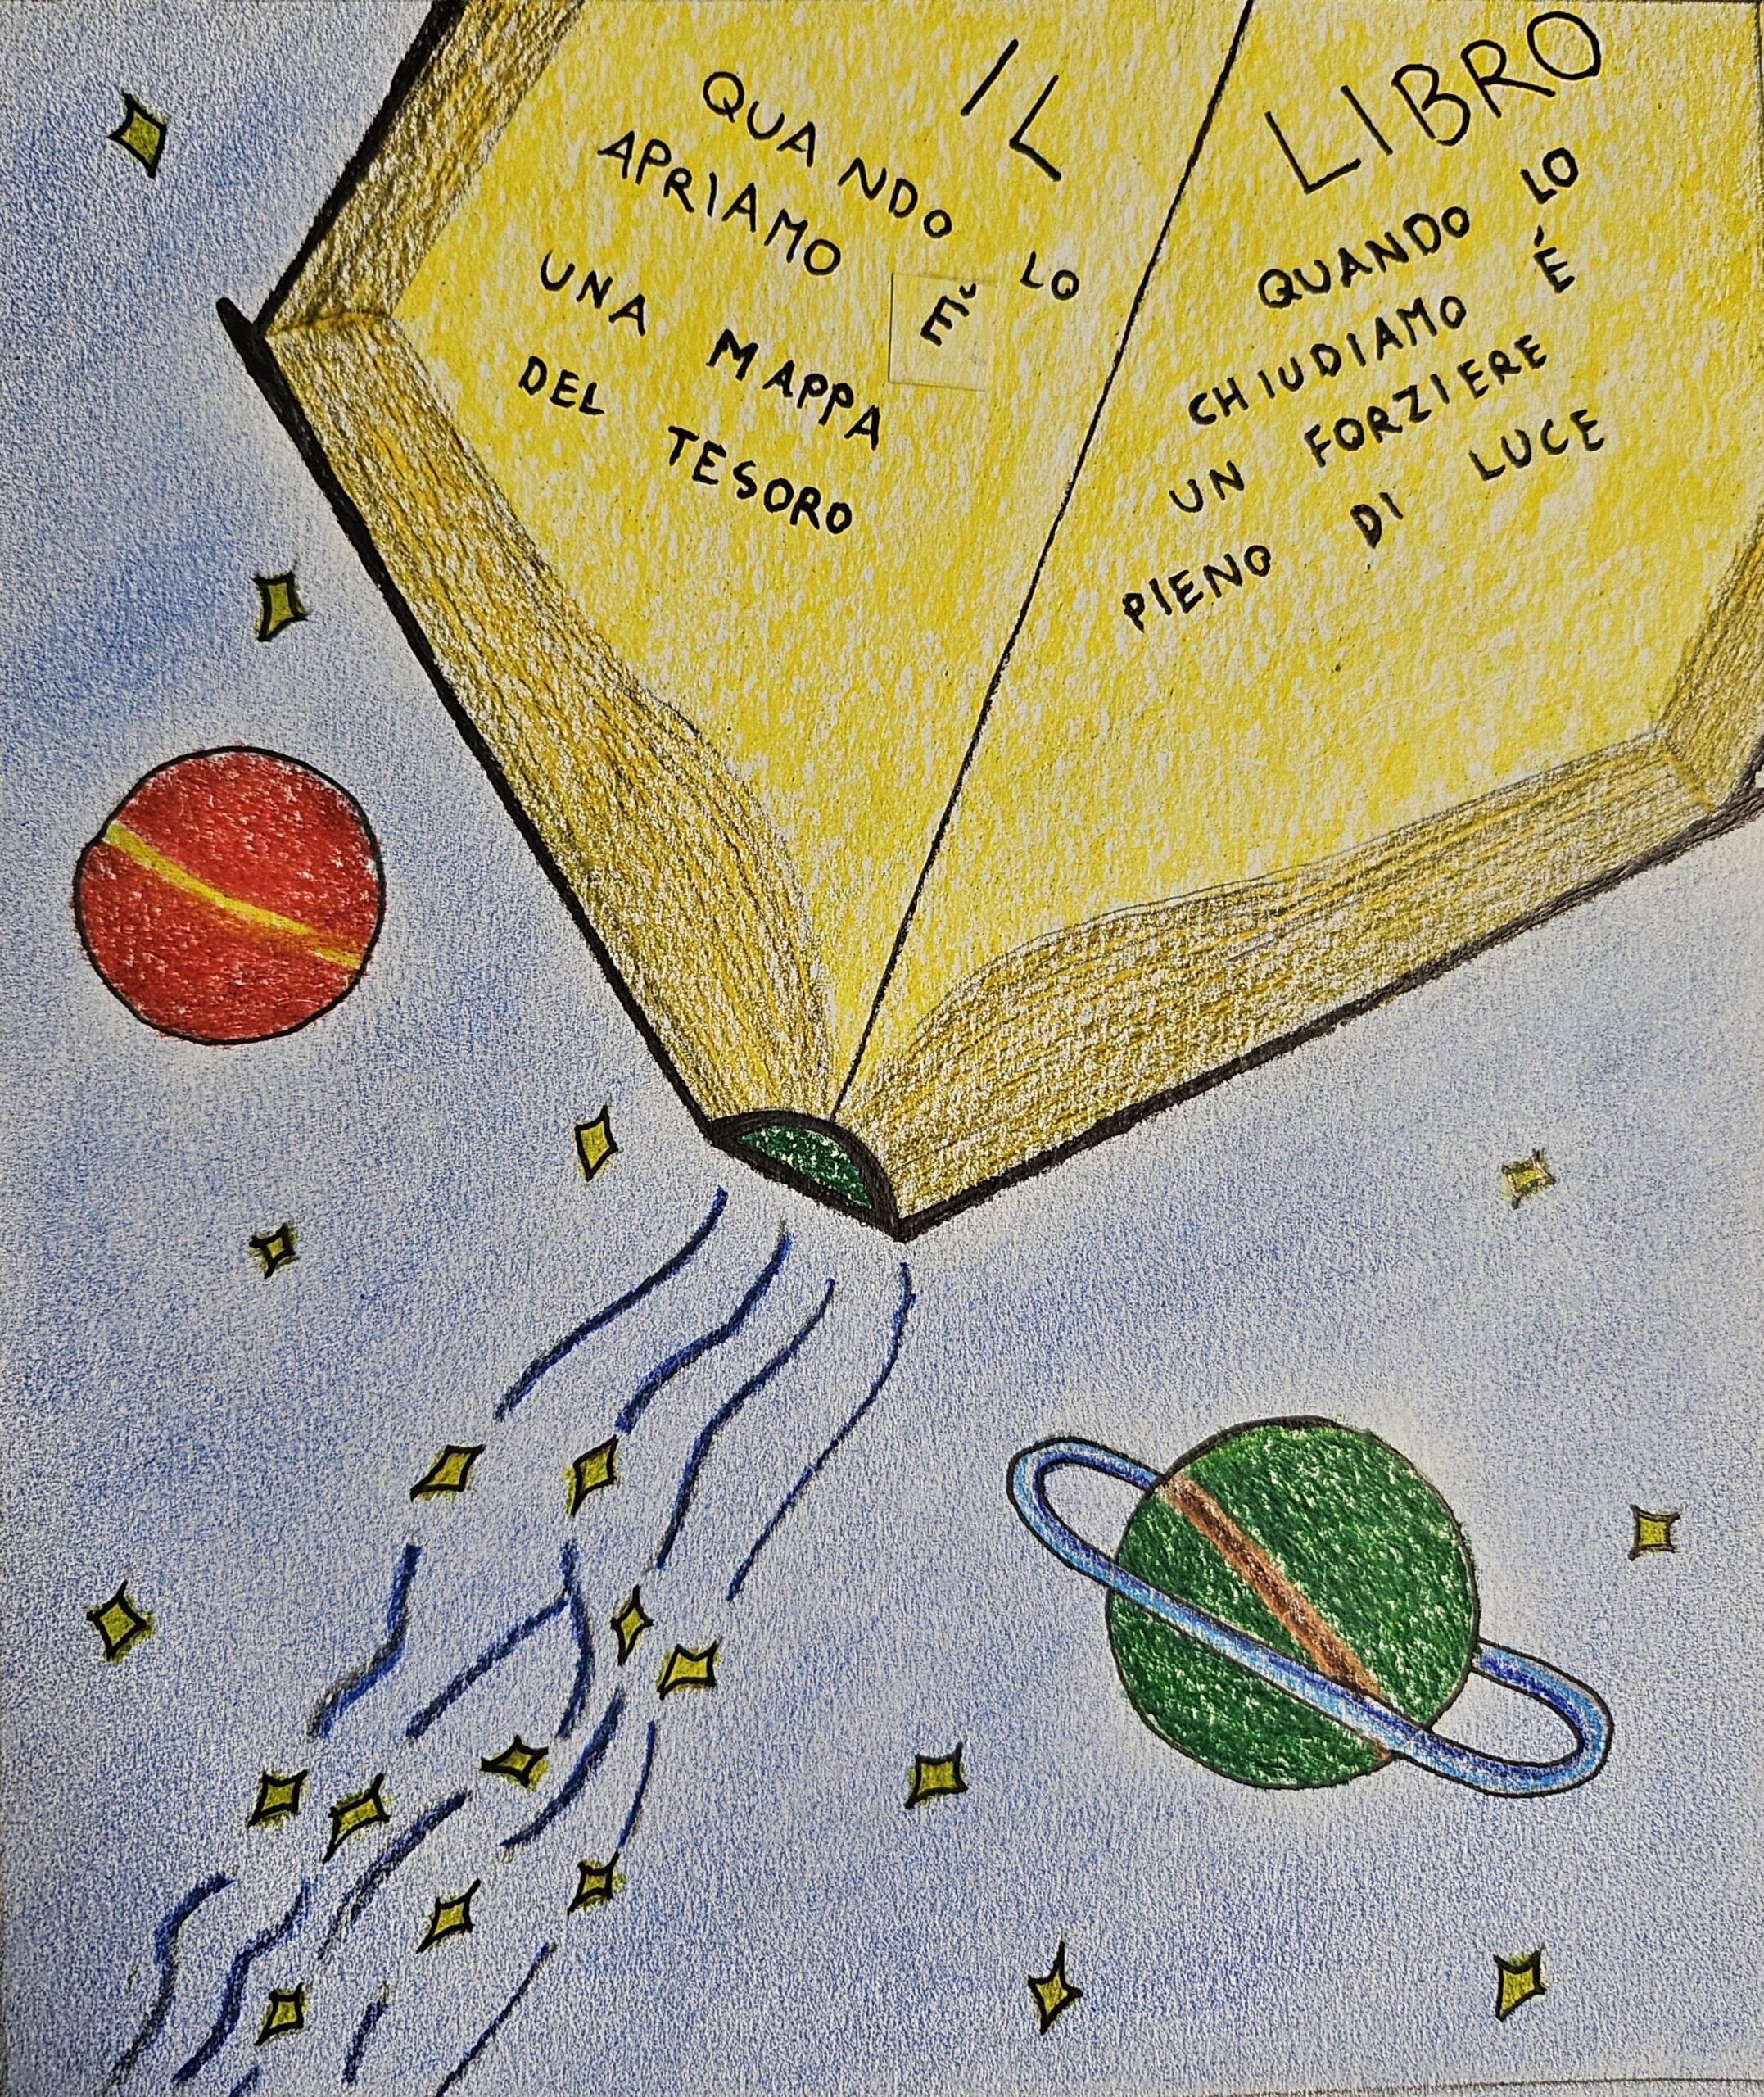 IL
QUANDO LO
APRIAMO È
UNA MAPPA
DEL TESORO
LIBRO
QUANDO LO
CHIUDIAMO É
UN FORZIERE
PIENO DI LUCE